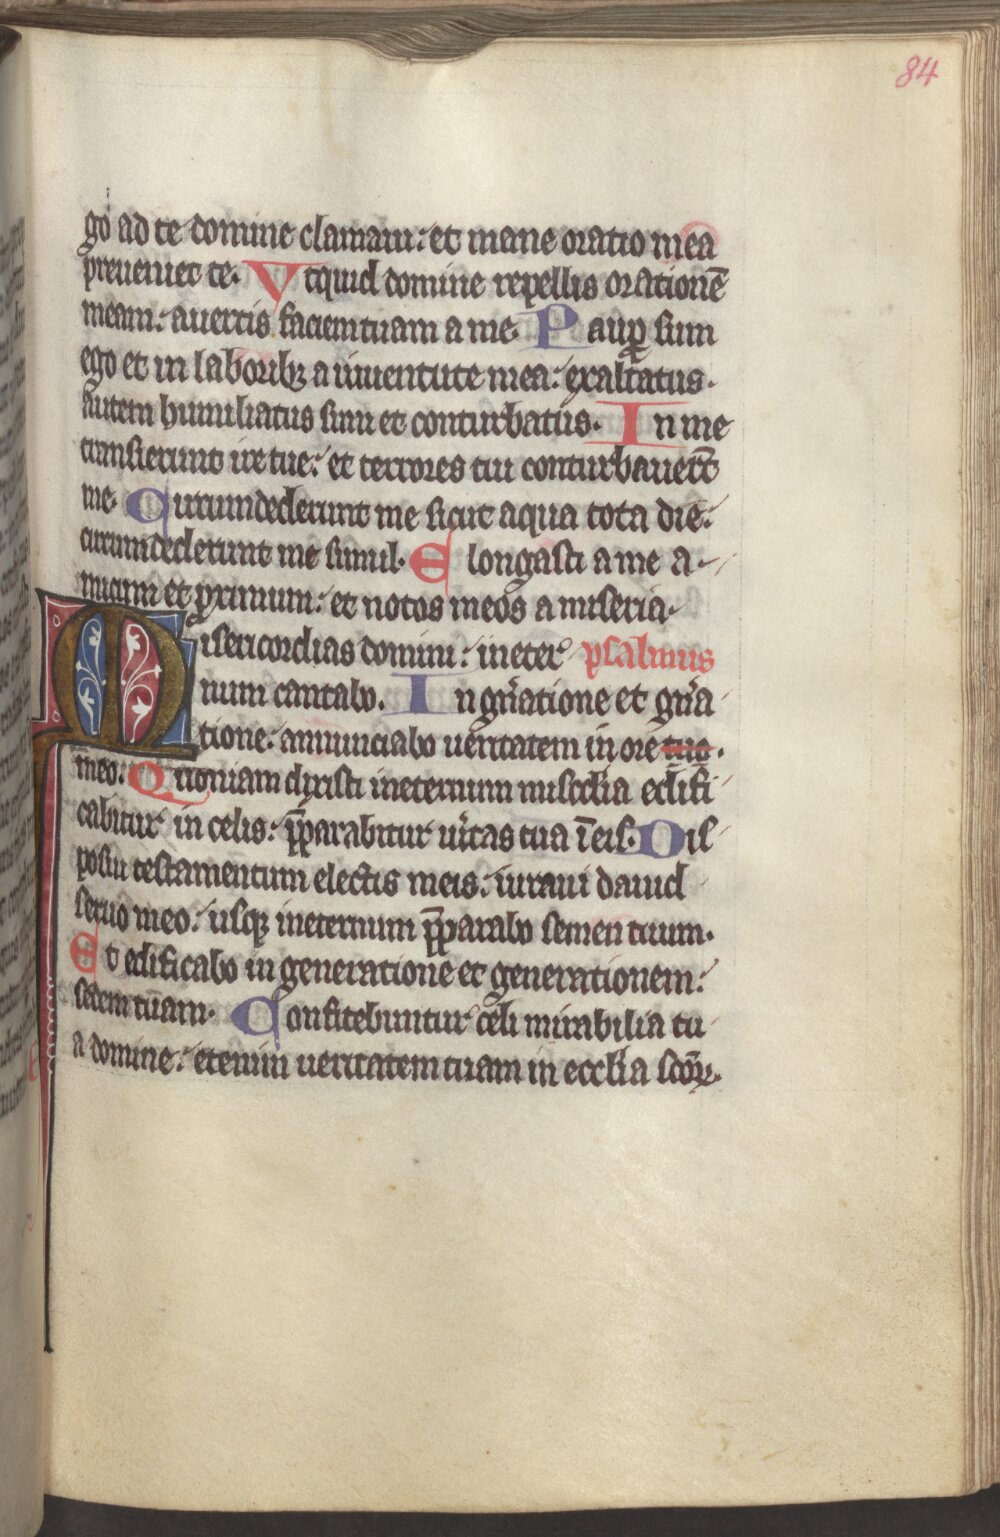 84
go ad te domine clamaui: et mane oratio mea
preueniet te. Vtquid domine repellis orationē
meam: auertis faciem tuam a me. Paup̱ sum
ego et in laboribꝫ a iuuentute mea: exaltatus
autem humiliatus sum et conturbatus. In me
transierunt ire tue: et terrores tui conturbauerūt
me. Circumdederunt me sicut aqua tota die:
circumdederunt me simul. Elongasti a me a-
micum et proximum: et notos meos a miseria.
Misericordias domini: ineter psalmus
num cantabo. In gn̄ratione et gn̄ra
tione: annunciabo ueritatem in ore tuo.
meo. Quoniam dixisti ineternum mis̄cdia edifi
cabitur in celis: p̄parabitur ūitas tua ī eis. Dis
posui testamentum electis meis: iuraui dauid
seruo meo: usqꝫ ineternum p̄parabo semen tuum.
Et edificabo in generatione et generationem:
sedem tuam. Confitebuntur celi mirabilia tu
a domine: etenim ueritatem tuam in eccłia scōꝝ.